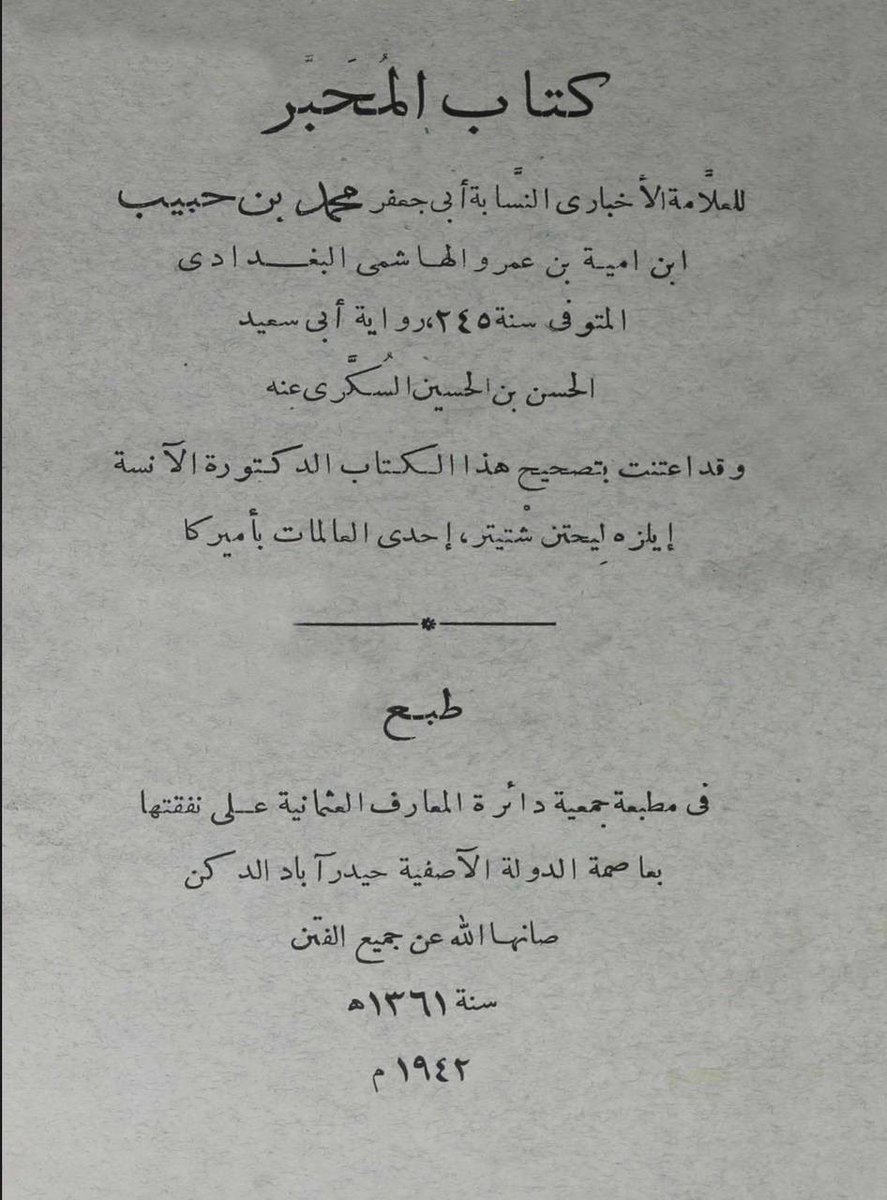 كتاب المُحَبَّر
للعلاَّمة الأخبارى النسَّابة أبى جعفر محمد بن حبيب
ابن امية بن عمرو الهاشمى البغدادى
المتوفى سنة ٢٤٥، رواية أبى سعيد
الحسن بن الحسين السُكَّرى عنه
وقد اعتنت بتصحيح هذا الكتاب الدكتورة الآنسة
إيلزه لِيحتن شْتيتر، إحدى العالمات بأميركا
طبع
فى مطبعة جمعية دائرة المعارف العثمانية على نفقتها
بعاصمة الدولة الآصفية حيدرآباد الدكن
صانها الله عن جميع الفتن
سنة ١٣٦١ھ
١٩٤٢ م